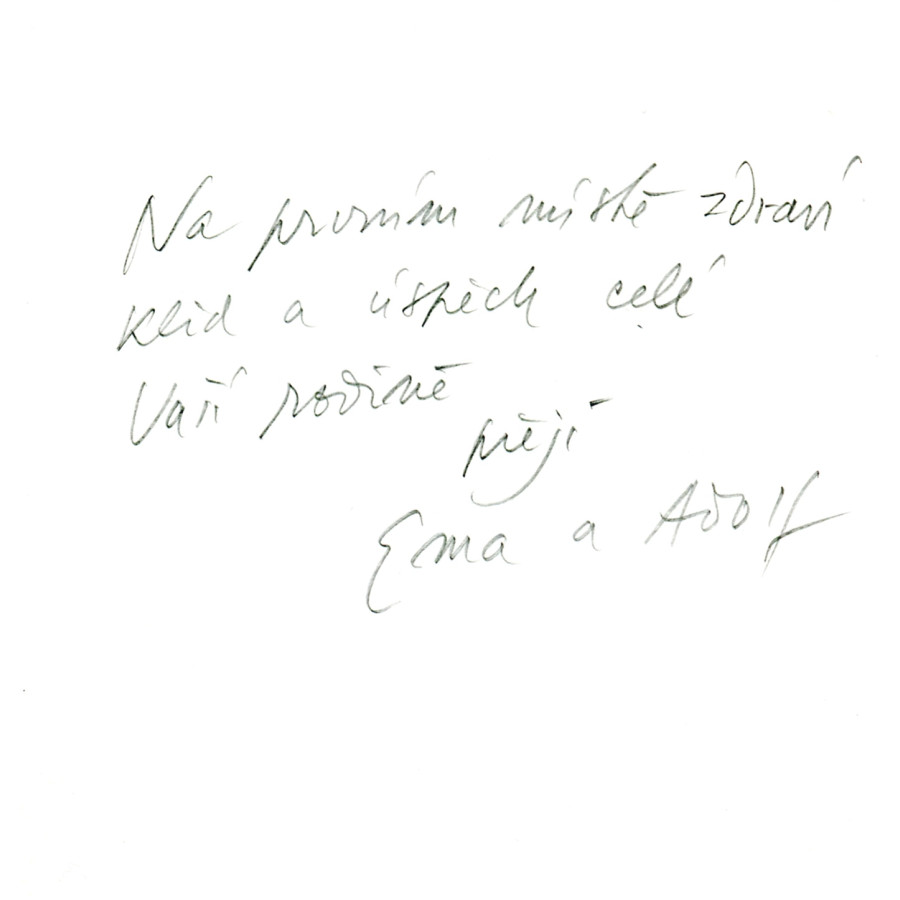 Na prvním místě zdraví
klid a úspěch celé
Vaší rodině
přejí
Ema a Adolf